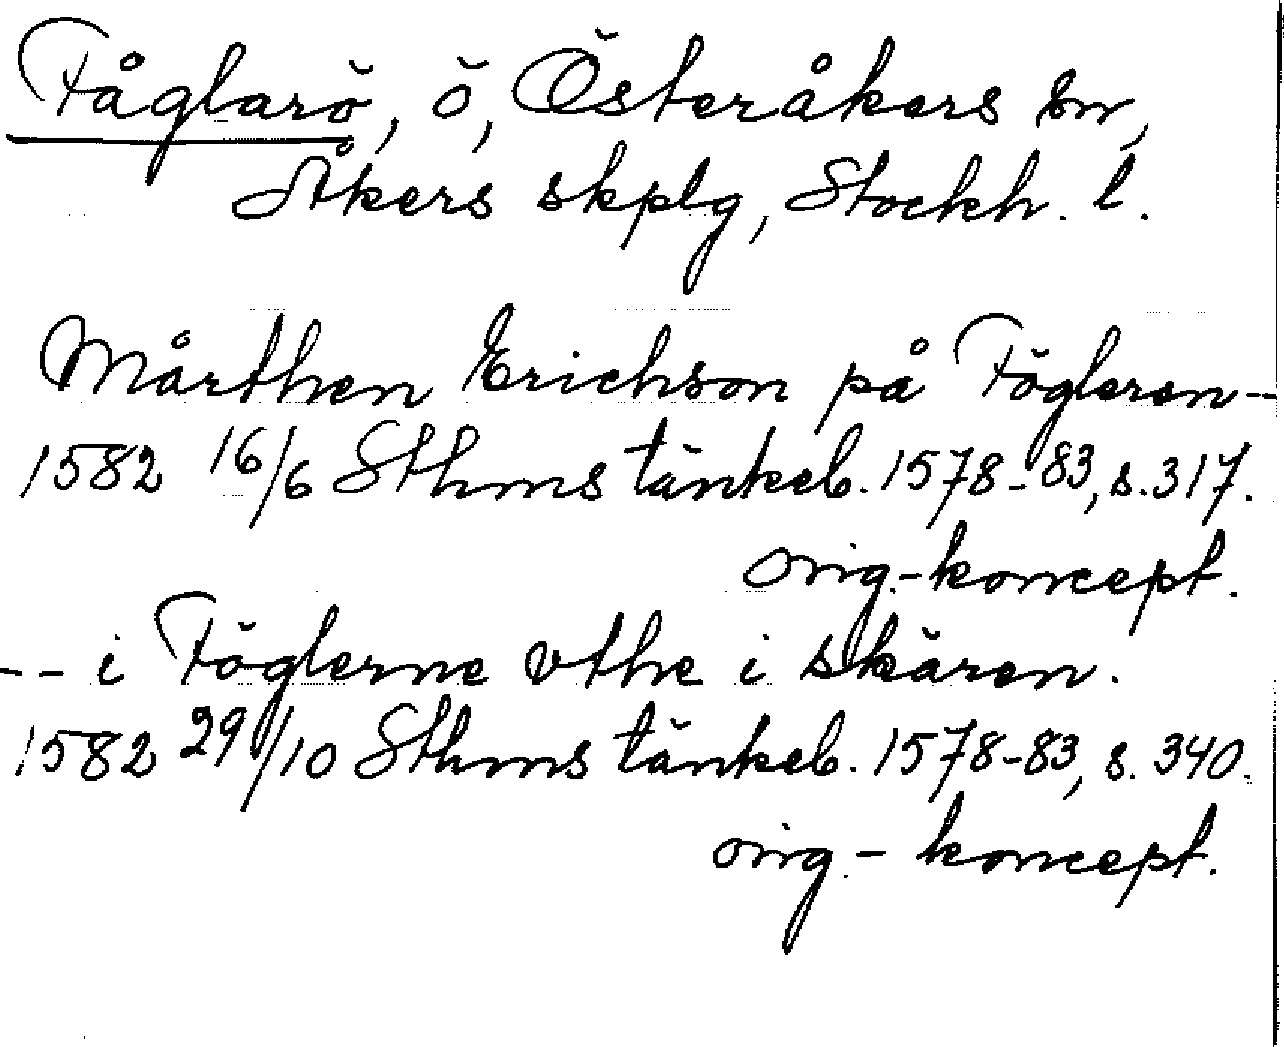 Fåglarö, ö, Österåkers sn,
Åkers skplg, Stockh. l.
Mårthen Erichson på Fögleren--
1582 16/6 Sthms tänkeb. 1578-83, s. 317.
orig.-koncept.
-- i Föglerne vthe i skären.
1582 29/10 Sthms tänkeb. 1578-83, s. 340.
orig.-koncept.